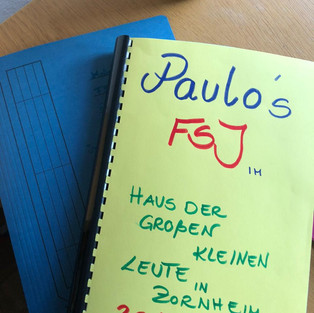 Paulo's
FSJ
IM
HAUS DER
GROßEN
KLEINEN
LEUTE
IN
ZORNHEIM